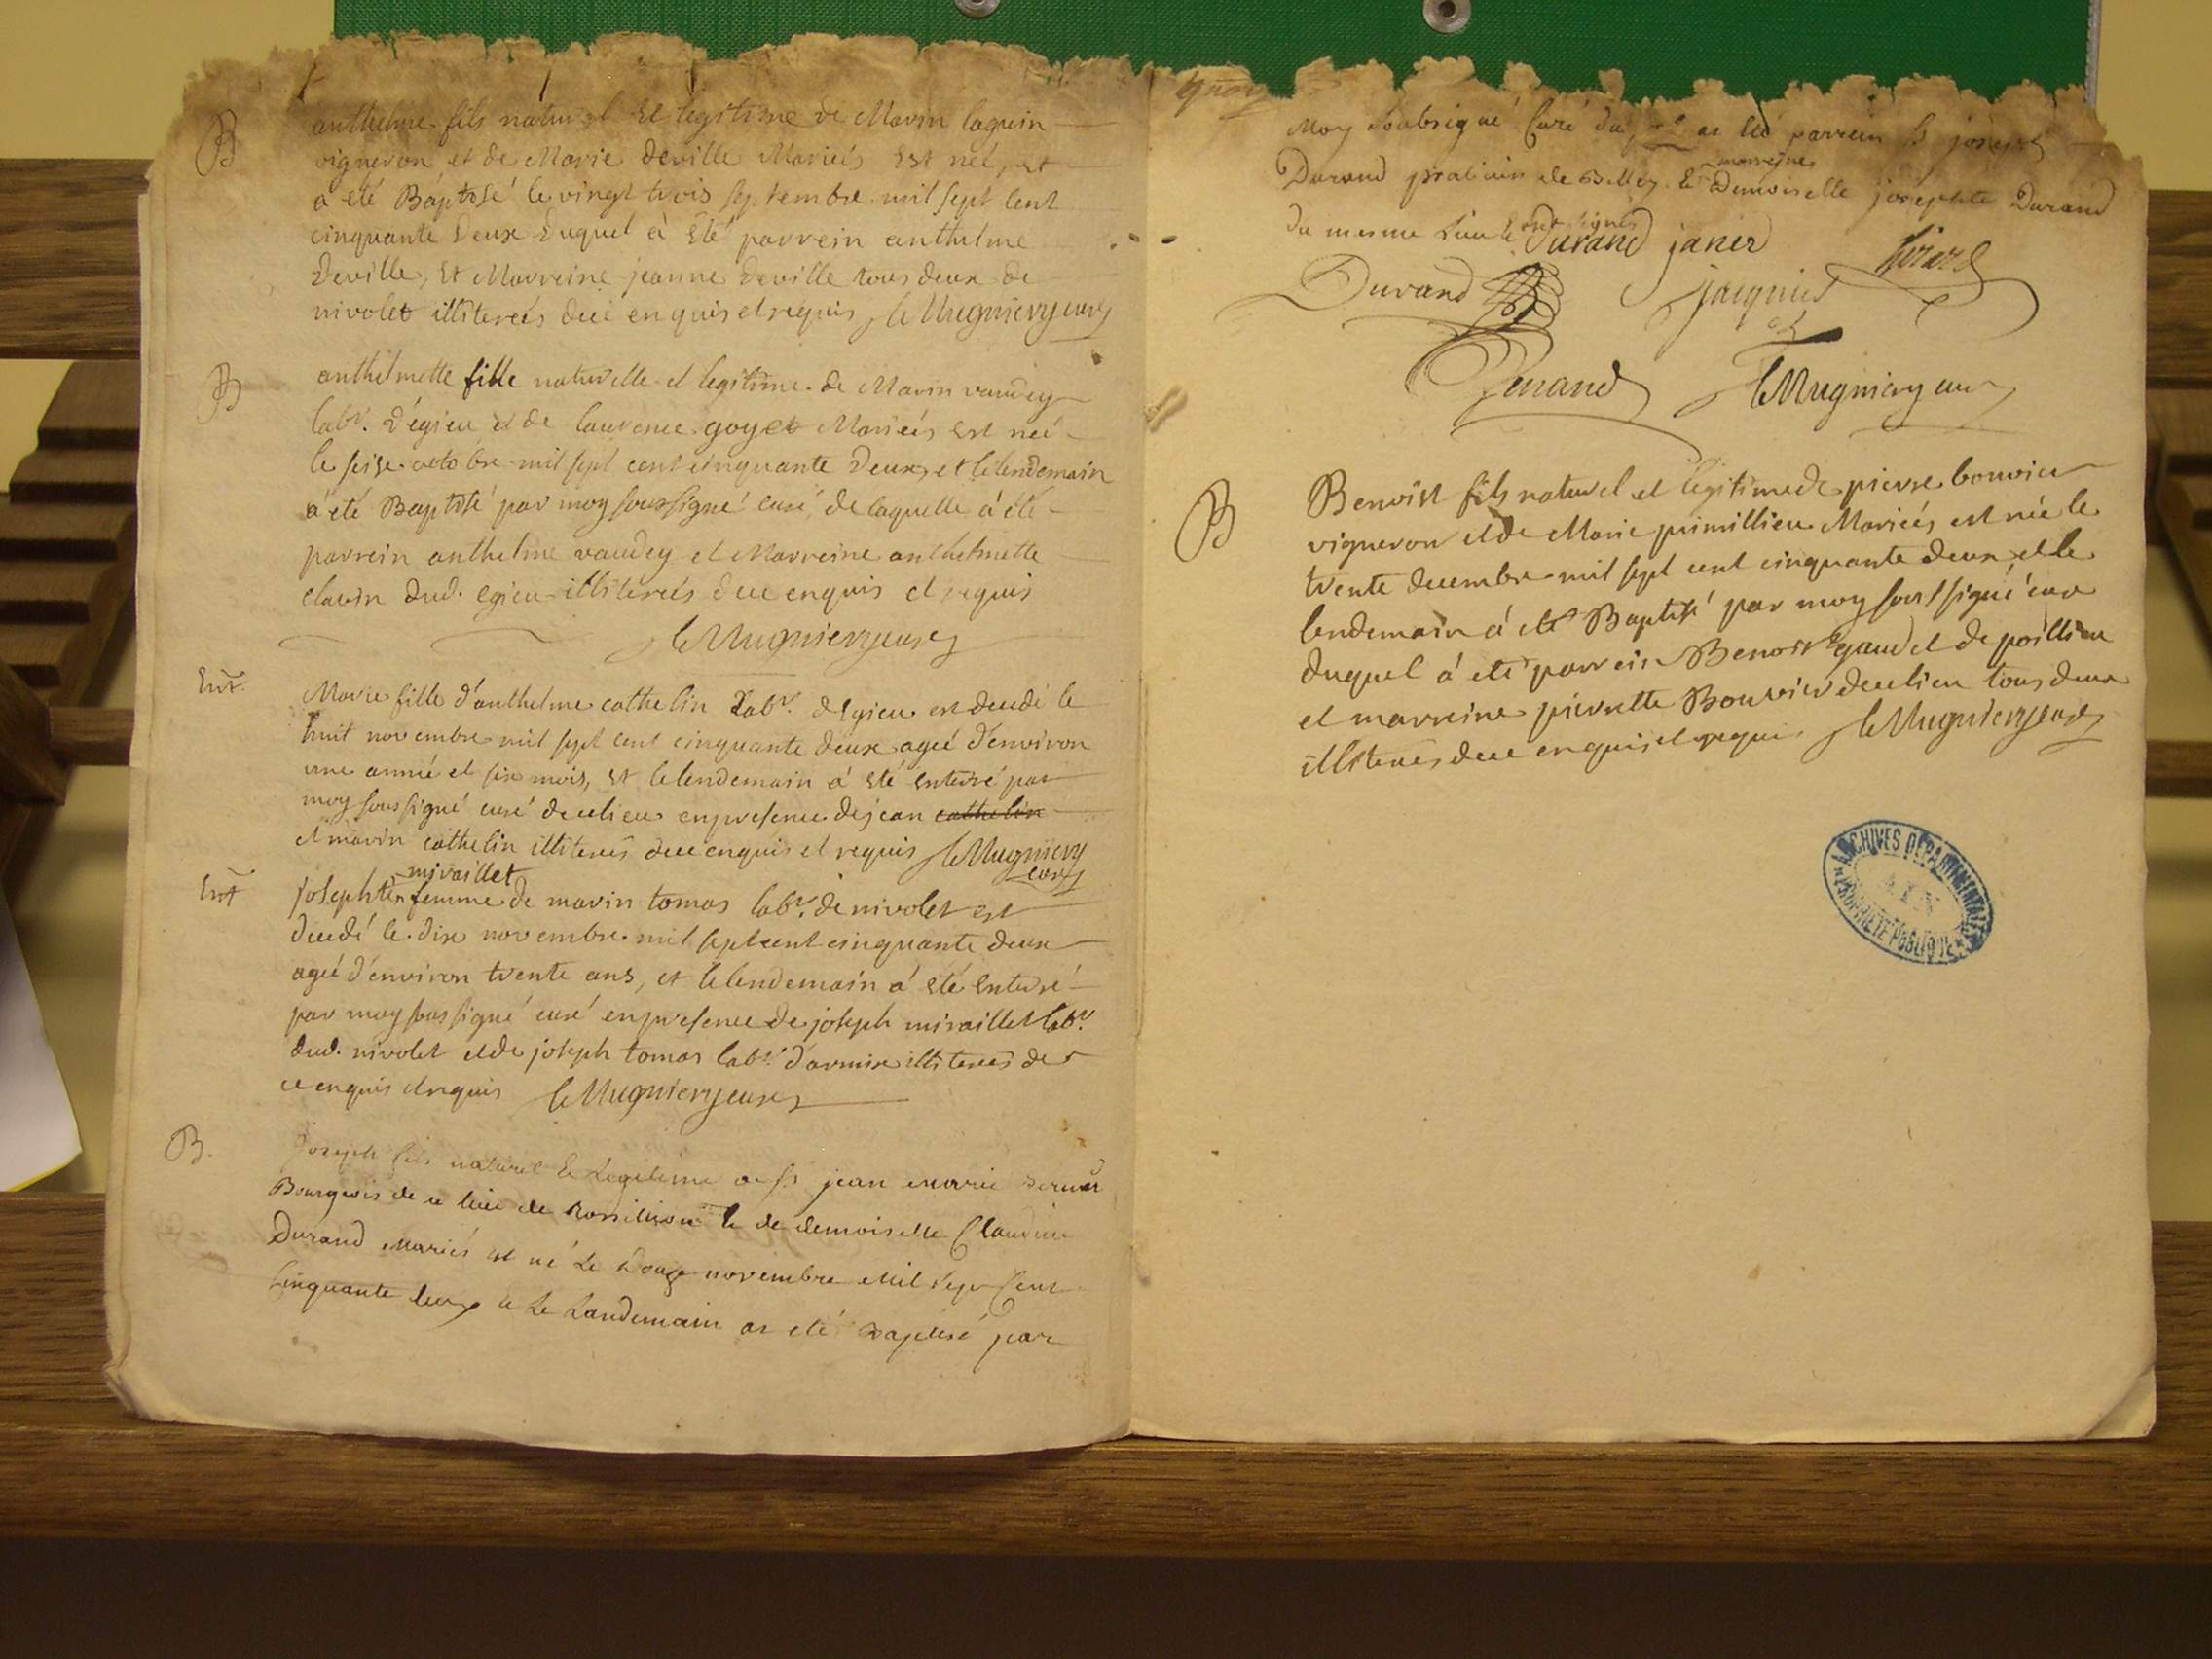 B
anthelme fils naturel et legitime de Marin laguin
vigneron et de Marie deville Mariés est neé, et
a été Baptisé le vingt trois septembre mil sept cent
cinquante deux duquel à été parrein anthelme
Deville, et Marreine jeanne Deville tous deux de
nivolet illitereés de ce enquis et requis LeMugniery curé
B
anthelmette fille naturelle et legitime de Marin vaudey
labr. d'égieu et de laurence goyet Mariés est neé
le seise octobre mil sept cent cinquante deux, et le lendemain
a été Baptisé par moy soussigné curé, de laquelle à été
parrein anthelme vaudey et Marreine anthelmette
clavin dud. egieu illitereés de ce enquis et requis
leMugniery curé
Ent.
Marie fille d'anthelme cathelin Labr. d'Egieu est decedé le
huit novembre mil sept cent cinquante deux ageé d'environ
une année et six mois, et le lendemain à été enterré par
moy soussigné curé de ce lieu en presence de jean cathelin
et marin cathelin illitereés de ce enquis et requis leMugniery
curé
Ent
miraillet
josephte femme de marin tomas labr. de nivolet est
decedé le dix novembre mil sept cent cinquante deux
ageé d'environ trente ans, et le lendemain à été enterré
par moy soussigné curé en presence de joseph miraillet labr.
dud. nivolet et de joseph tomas labr. d'armix illitereés de
ce enquis et requis leMugniery curé
B.
joseph fils naturel & Legitime de sr jean marie
Bourgeois de ce lieu de Rossillion & de demoiselle Claudine
Durand Mariés est né Le douze novembre Mil Sept Cent
Cinquante deux & Le Landemain as eté Baptisé par
Moy Soubsigné Curé du as eté parrein sr joseph
marreine
Durand praticien de Belley & Demoiselle josephte Durand
du mesme Lieu & ont signés
Durand janin Girard
Durand jacquier
Durand
leMugniery curé
B
Benoist fils naturel et legitime de pierre bouvier
vigneron et de Marie primillieu Mariés, est neé le
trente decembre mil sept cent cinquante deux et le
lendemain à été Baptisé par moy soussigné curé
duquel à été parrein Benoist gaudet de poillieu
et marreine pierrette Bouvier de ce lieu tous deux
illitereés de ce enquis et requis leMugniery curé
ARCHIVES DEPARTEMENTALES
AIN
PROPRIETE PUBLIQUE